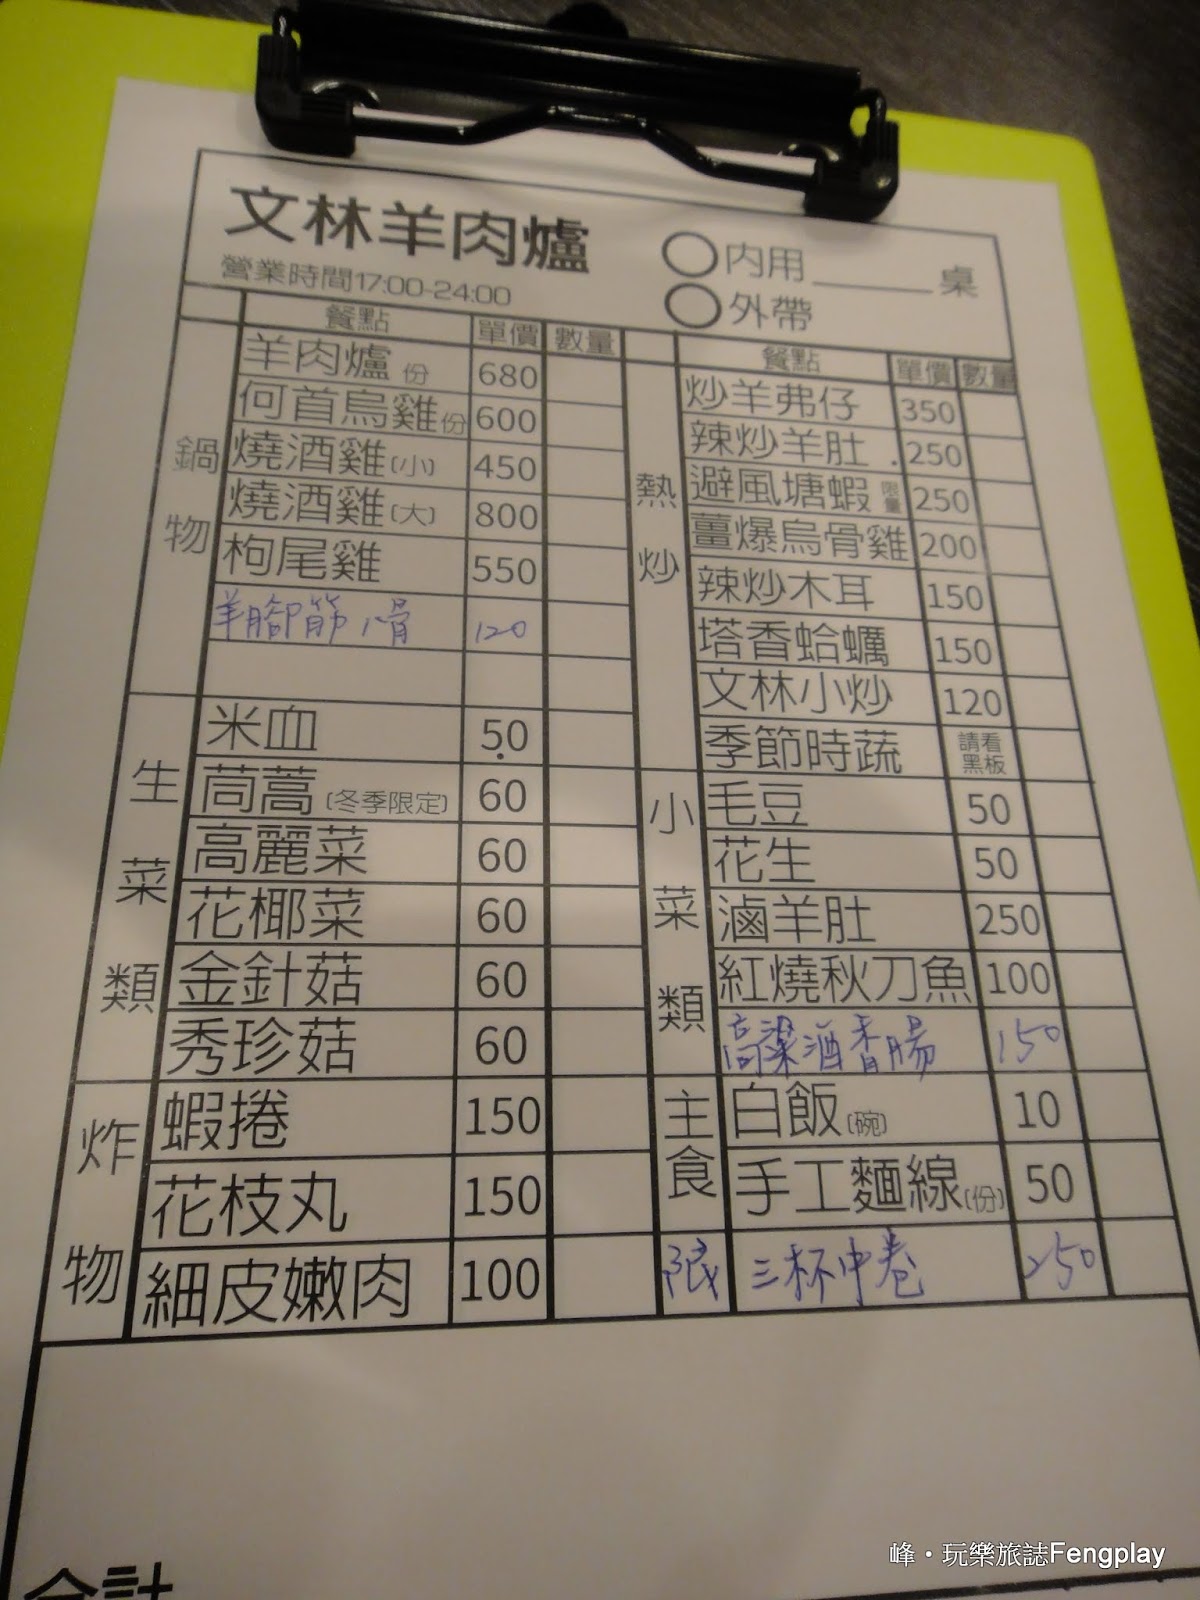 文林羊肉爐
營業時間17:00-24:00
內用______桌
外帶
餐點 單價 數量
鍋物
羊肉爐 份 680
何首烏雞 份 600
燒酒雞(小) 450
燒酒雞(大) 800
枸尾雞 550
羊腳筋 120
生菜類
米血 50
茼蒿(冬季限定) 60
高麗菜 60
花椰菜 60
金針菇 60
秀珍菇 60
炸物
蝦捲 150
花枝丸 150
細皮嫩肉 100
餐點 單價 數量
熱炒
炒羊弗仔 350
辣炒羊肚 . 250
避風塘蝦 限量 250
薑爆烏骨雞 200
辣炒木耳 150
塔香蛤蠣 150
文林小炒 120
季節時蔬 請看黑板
小菜類
毛豆 50
花生 50
滷羊肚 250
紅燒秋刀魚 100
高粱酒香腸 150
主食
白飯(碗) 10
手工麵線(份) 50
限 三杯中卷 250
合計
峰・玩樂旅誌Fengplay